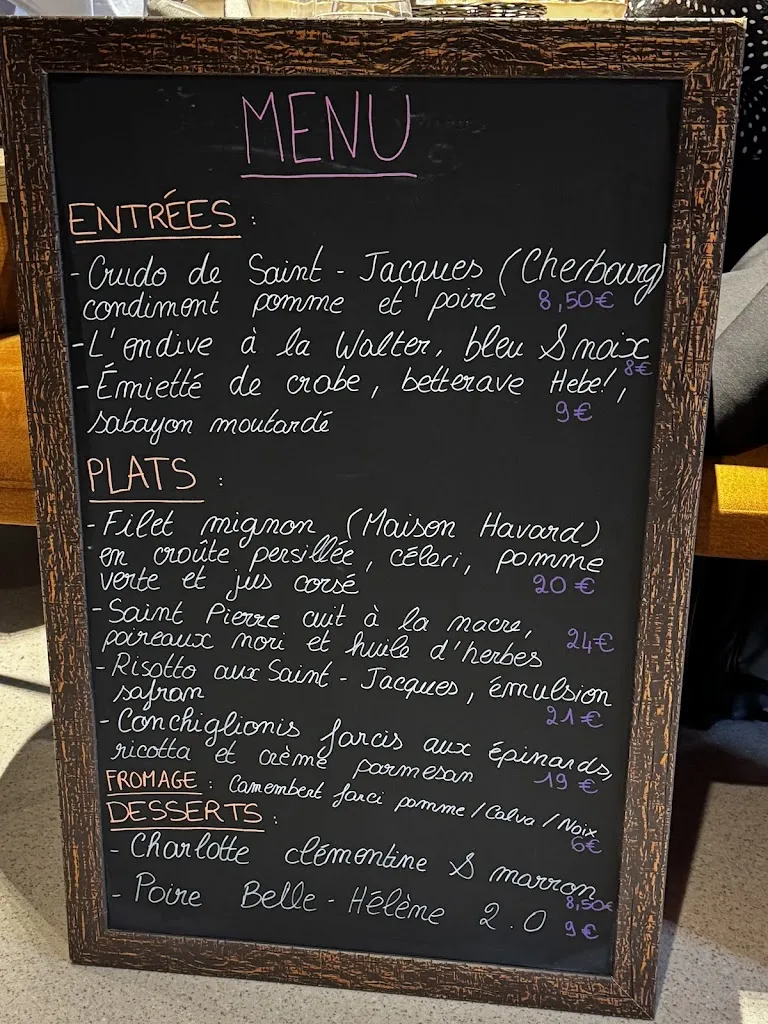 MENU
ENTRÉES :
- Crudo de Saint - Jacques (Cherbourg)
condiment pomme et poire 8,50€
- L'endive à la Walter, bleu & noix
8€
- Émietté de crabe, betterave Hebe!,
sabayon moutardé 9€
PLATS :
- Filet mignon (Maison Havard)
en croûte persillée, céleri, pomme
verte et jus corsé 20€
- Saint Pierre cuit à la nacre,
poireaux nori et huile d'herbes 24€
- Risotto aux Saint - Jacques, émulsion
safran 21€
- Conchiglionis farcis aux épinards,
ricotta et crème parmesan 19€
FROMAGE : Camembert farci pomme / Calva / Noix
6€
DESSERTS :
- Charlotte clémentine & marron
8,50€
- Poire Belle - Hélène 2.0 9€